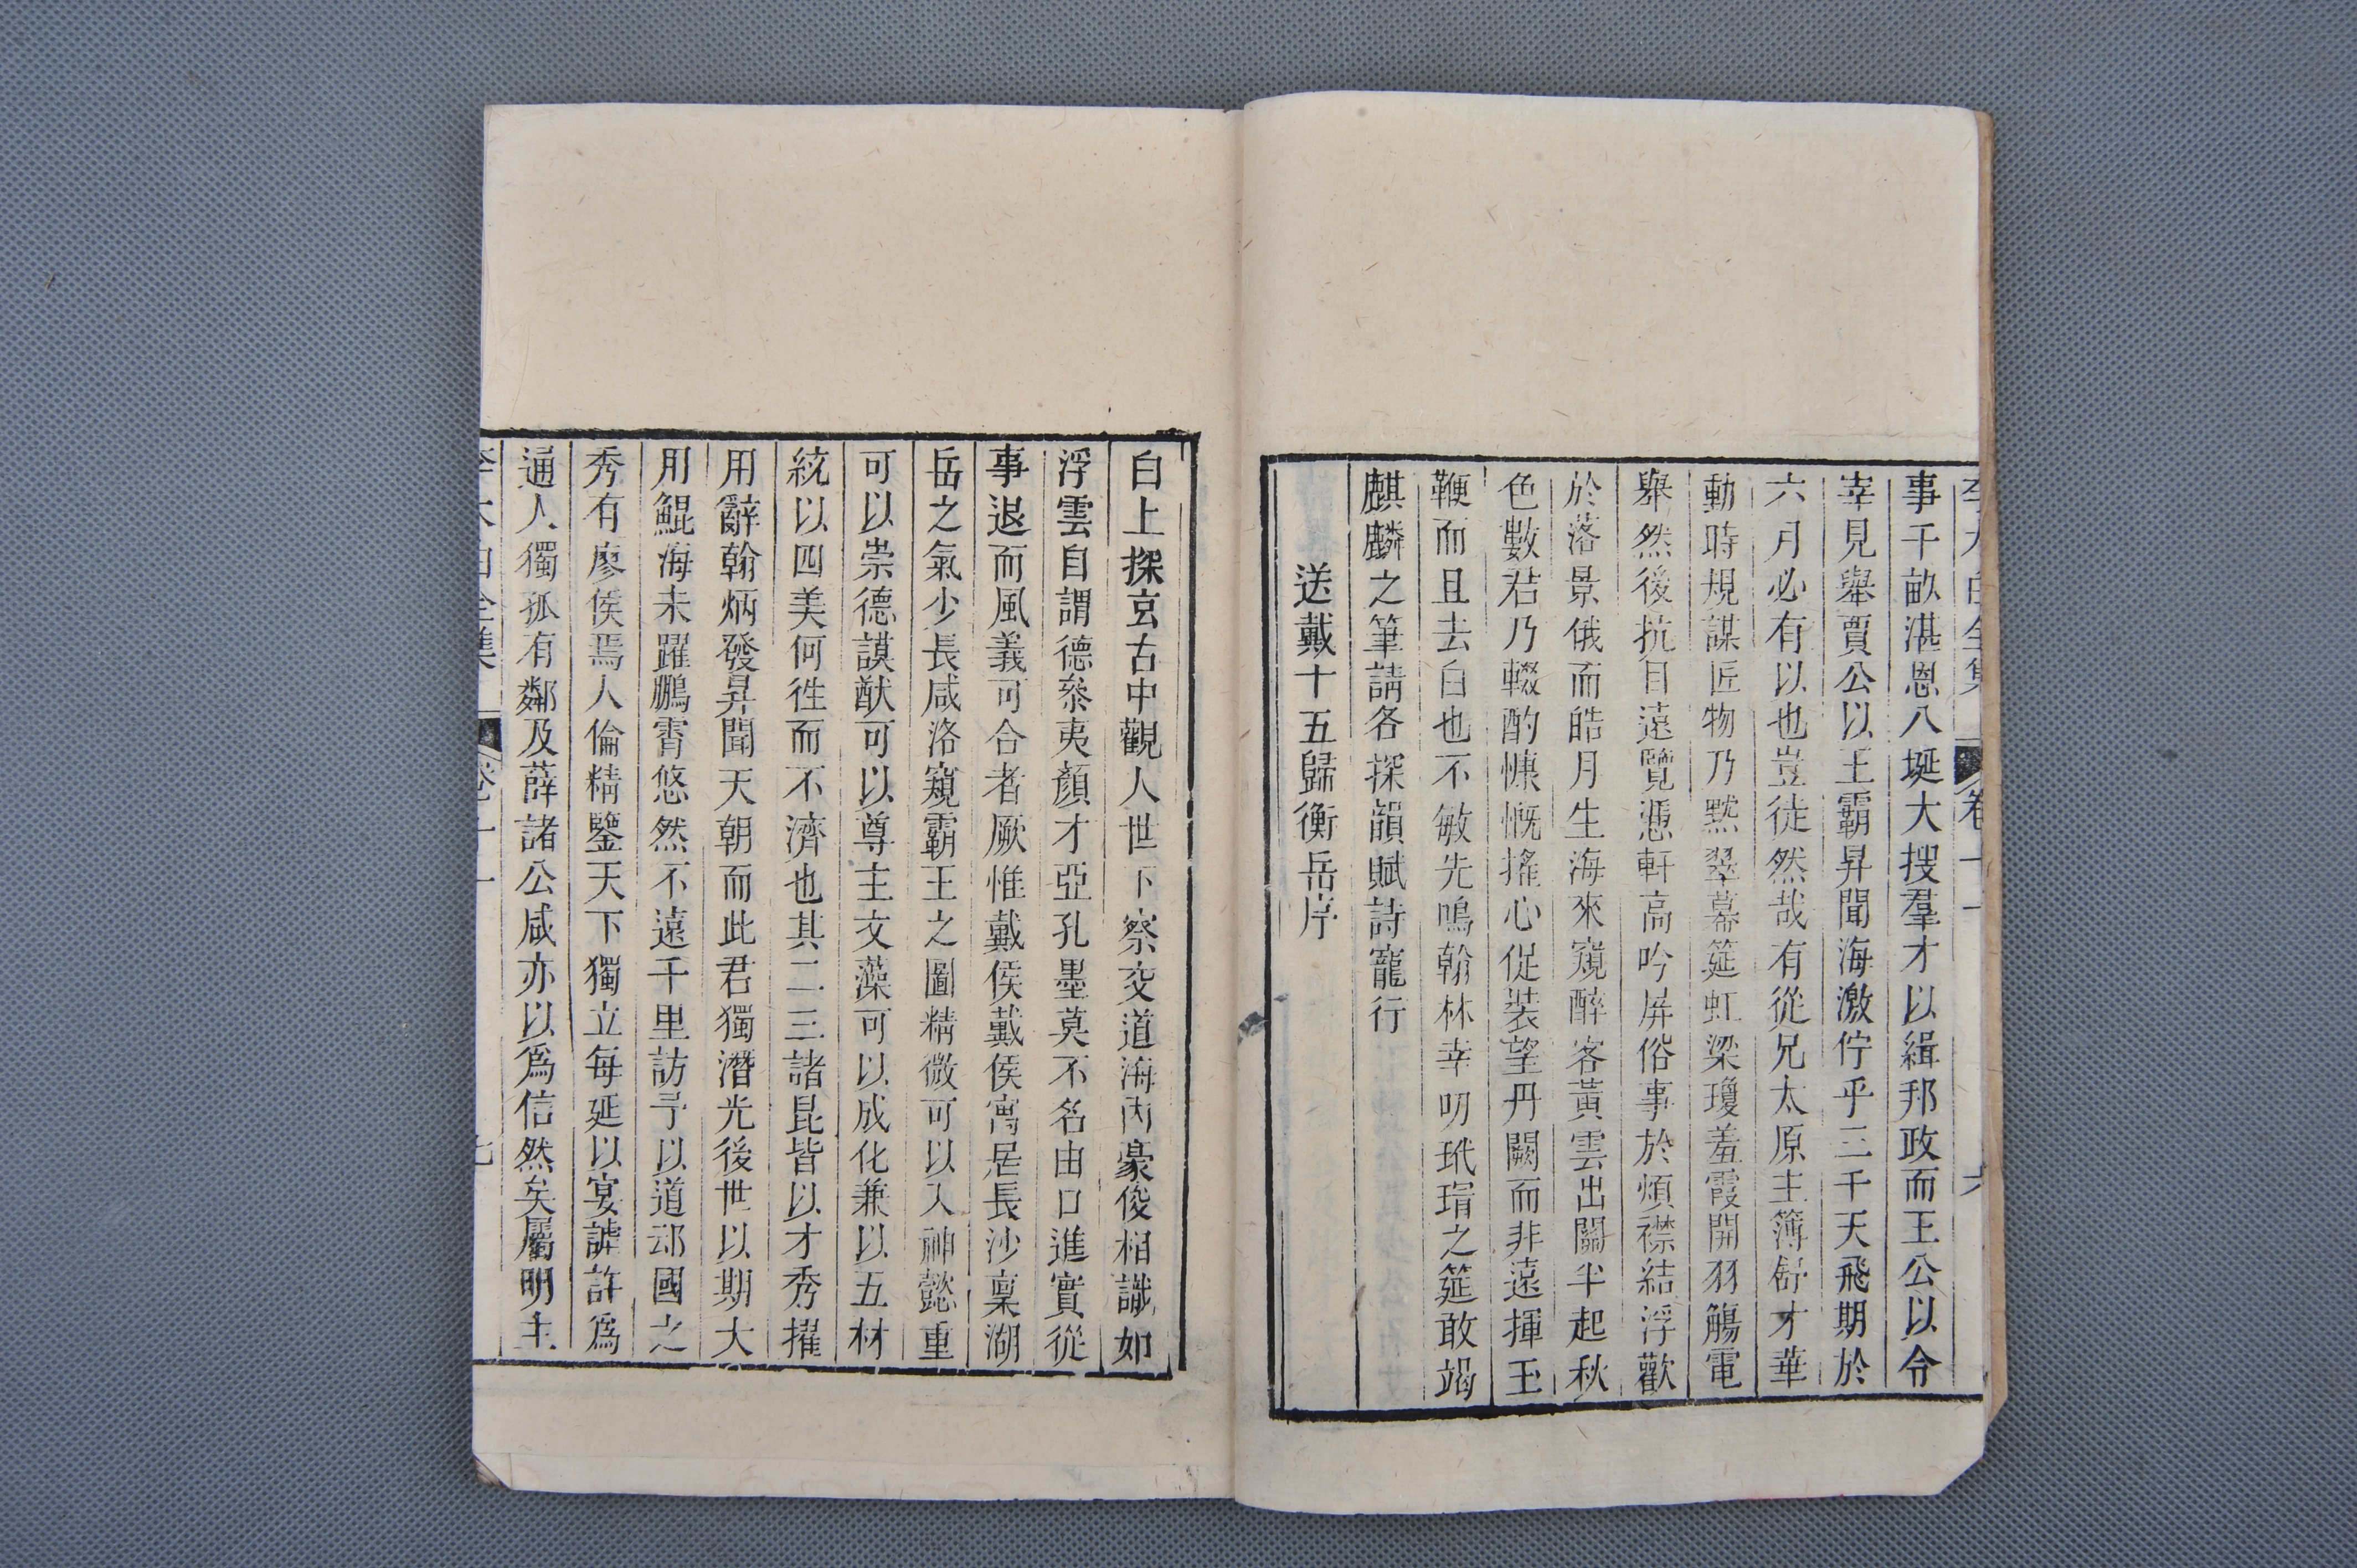 李太白全集 卷十一 六
事千畝湛恩八埏大搜羣才以緝邦政而王公以令
宰見舉賈公以王霸昇聞海激佇乎三千天飛期於
六月必有以也豈徒然哉有從兄太原主簿舒才華
動時規謀匠物乃黙翠幕筵虹梁瓊羞霞開羽觴電
舉然後抗目遠覽憑軒高吟屏俗事於煩襟結浮歡
於落景俄而皓月生海來窺醉客黃雲出關半起秋
色數君乃輟酌慷慨搖心促裝望丹闕而非遠揮玉
鞭而且去白也不敏先鳴翰林幸叨玳瑁之筵敢竭
麒麟之筆請各探韻賦詩寵行
送戴十五歸衡岳序
白上探玄古中觀人世下察交道海內豪俊相識如
浮雲自謂德叅夷顏才亞孔墨莫不名由口進實從
事退而風義可合者厥惟戴侯戴侯寓居長沙稟湖
岳之氣少長咸洛窺霸王之圖精微可以入神懿重
可以崇德謨猷可以尊主文藻可以成化兼以五材
統以四美何徃而不濟也其二三諸昆皆以才秀擢
用辭翰炳發昇聞天朝而此君獨潛光後世以期大
用鯤海未躍鵬霄悠然不遠千里訪予以道邧國之
秀有廖侯焉人倫精鑒天下獨立每延以宴謔許爲
通人獨孤有鄰及薛諸公咸亦以爲信然矣屬明主
李太白全集 卷十一 七